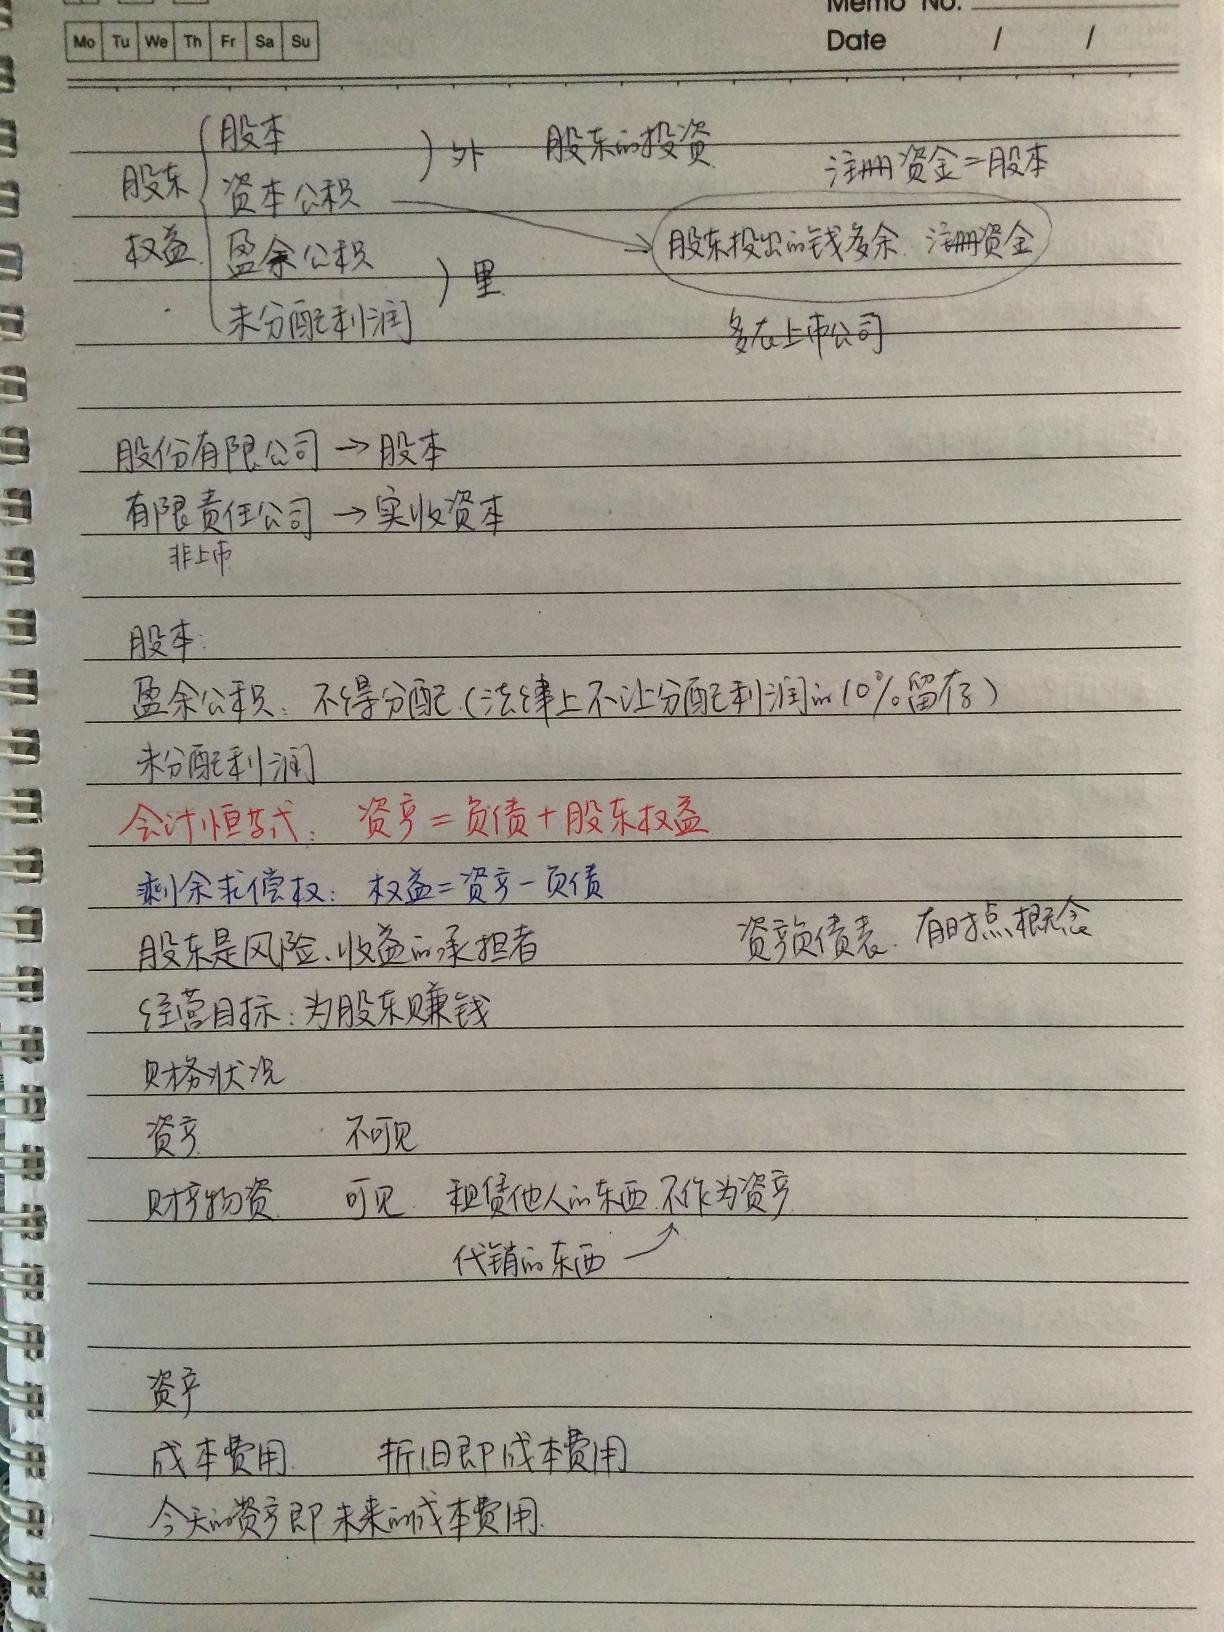 Memo No.
Mo Tu We Th Fr Sa Su
Date / /
股东权益 { 股本 ) 外 股东的投资
注册资金=股本
资本公积 → 股东投出的钱多余 注册资金
盈余公积 ) 里
未分配利润
多在上市公司
股份有限公司 → 股本
有限责任公司 → 实收资本
非上市
股本:
盈余公积: 不得分配.(法律上不让分配利润的10%留存)
未分配利润
会计恒等式: 资产=负债+股东权益
剩余求偿权: 权益=资产-负债
股东是风险、收益的承担者 资产负债表. 有时点概念
经营目标:为股东赚钱
财务状况
资产 不可见
财产物资 可见 租赁他人的东西 不作为资产
代销的东西
资产
成本费用 折旧即成本费用
今天的资产即未来的成本费用.